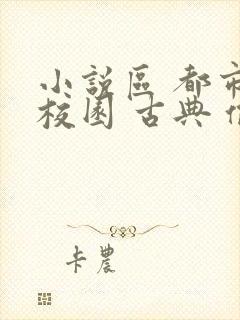 小說區 都市
校園 古典
卡農